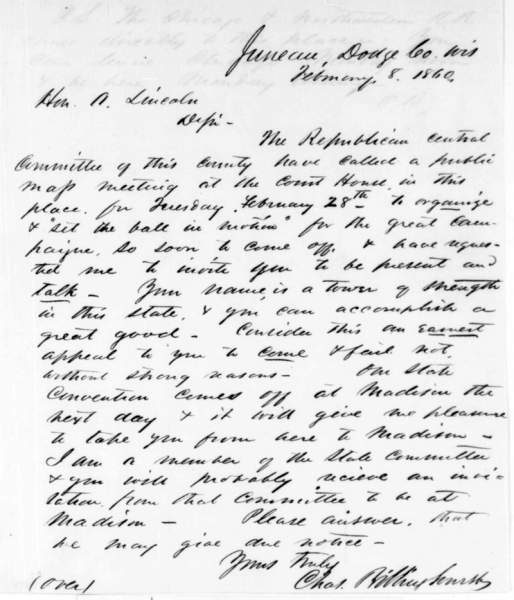 Juneau, Dodge Co, Wis
February, 8. 1860.
Hon. A. Lincoln
Dr Sir-
The Republican central
Committee of this County have called a public
mass meeting at the Court House, in this
place, for Tuesday, February 28th to organize
& "set the ball in motion" for the great Cam-
paigne, so soon to come off. & have reques-
ted me to invite you to be present and
talk - Your name, is a tower of strength
in this State, & you can accomplish a
great good - Consider this an earnest
appeal to you to come & fail not,
without strong reasons - Our State
Convention comes off at Madison the
next day & it will give me pleasure
to take you from here to Madison -
I am a member of the State Committee
& you will probably recieve an invi-
tation, from that Committee to be at
Madison - Please answer, that
we may give due notice -
Yours truly
Chas. Billinghurst
(over)